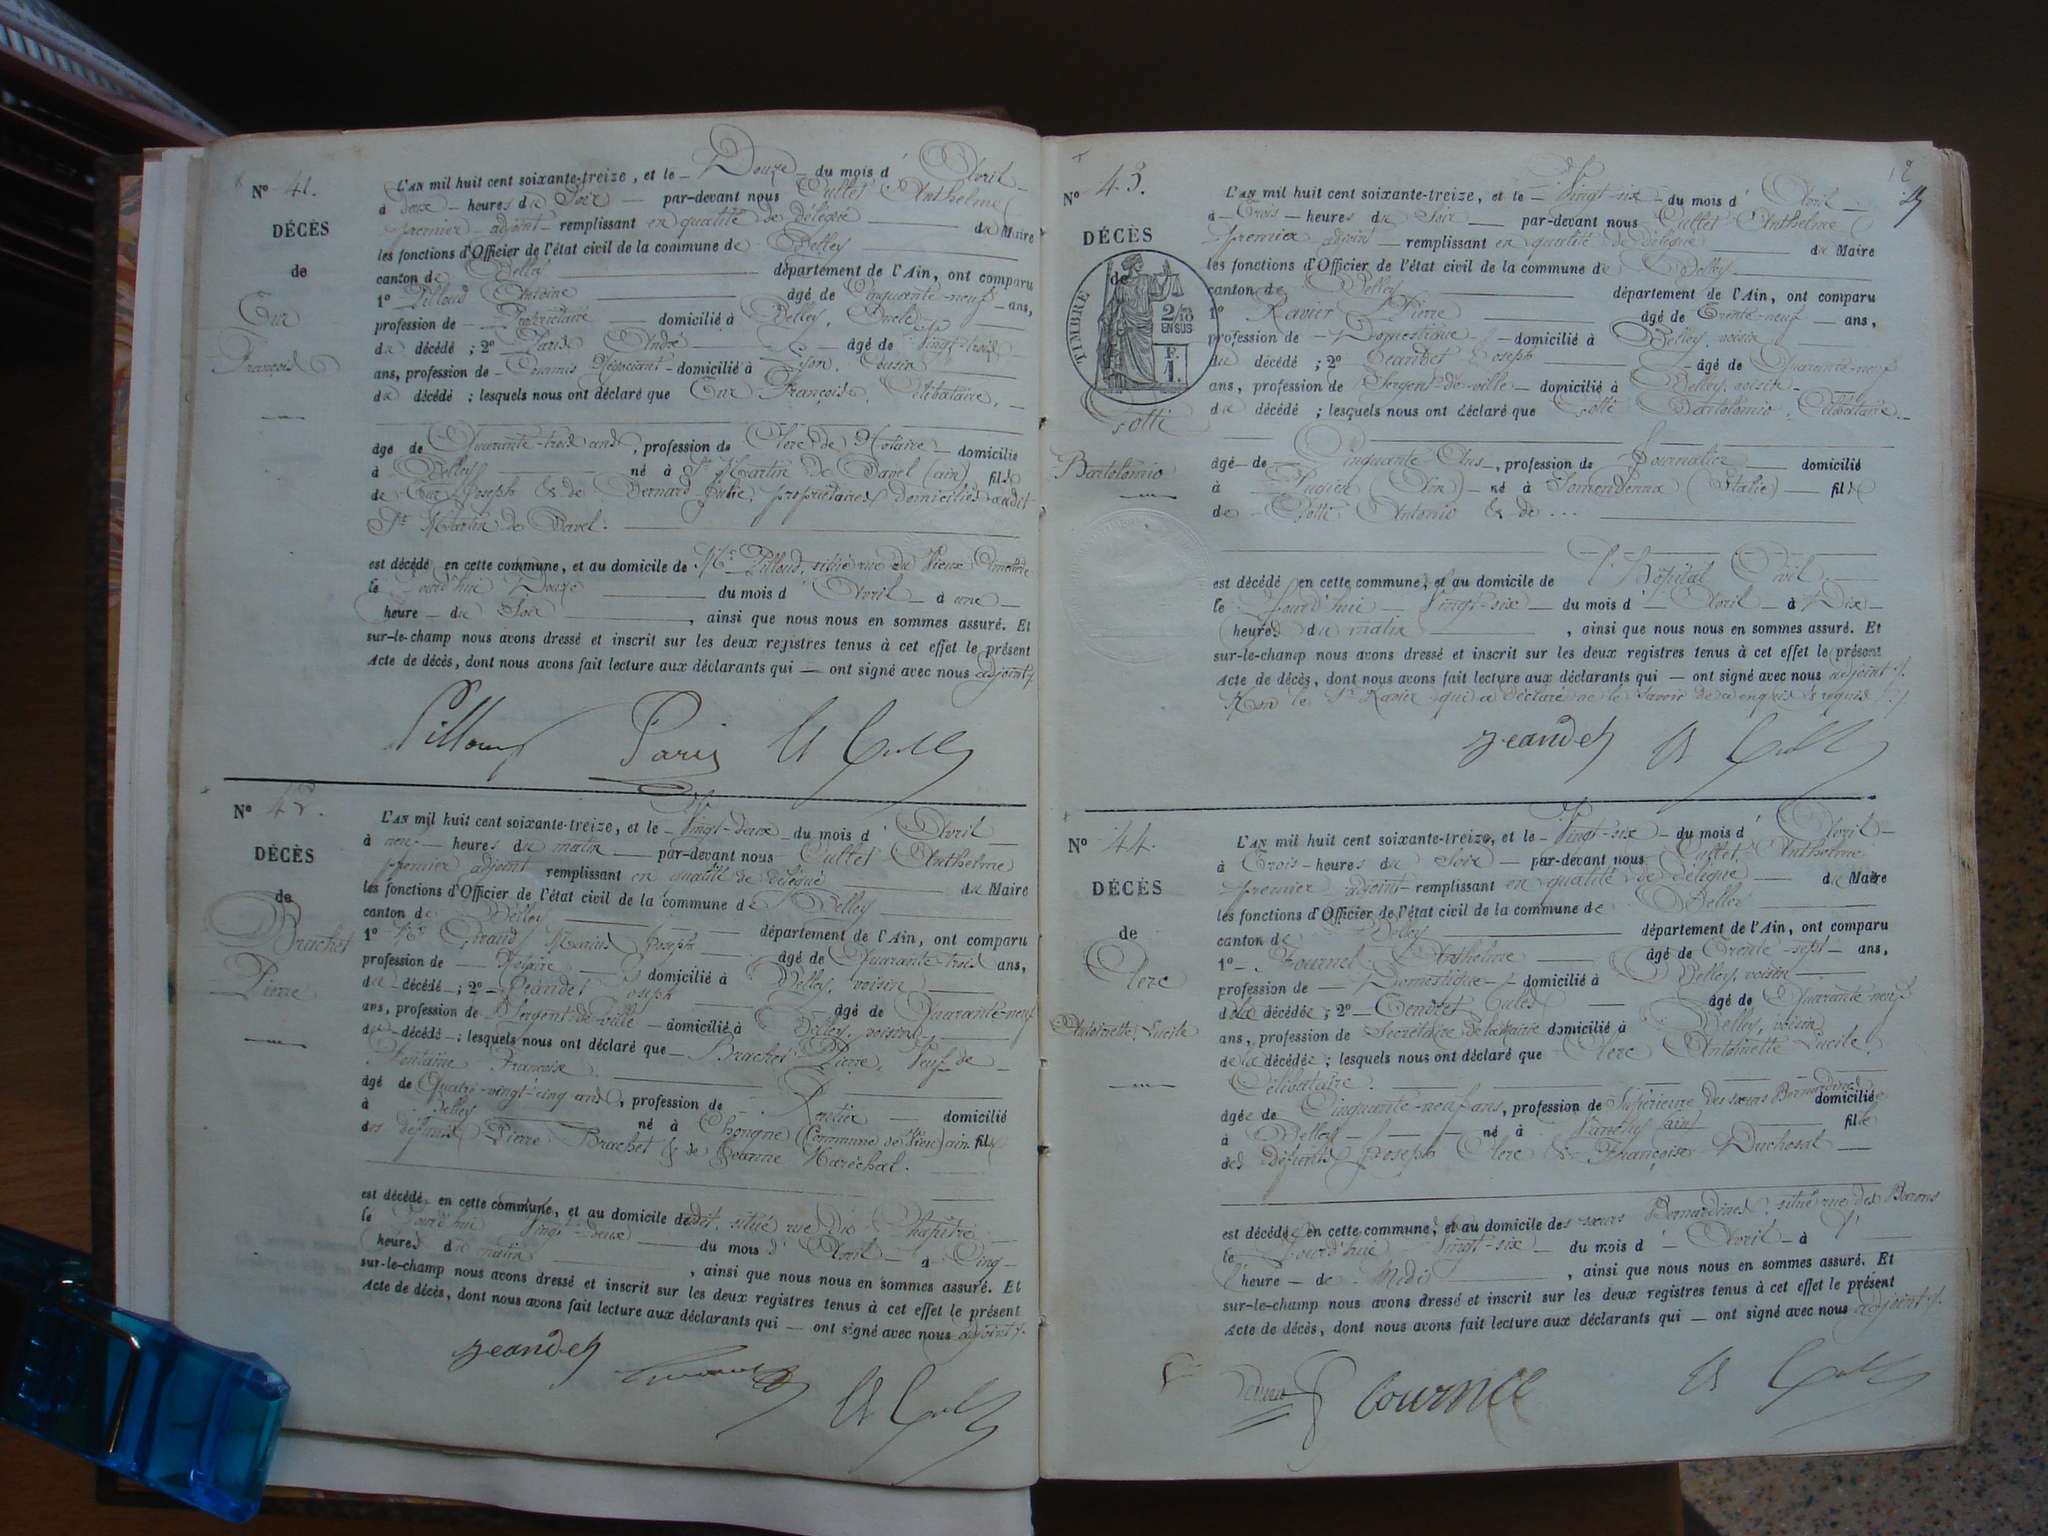 N° 41.
DÉCÈS
de
Cur
François
L'AN mil huit cent soixante-treize, et le Douze du mois d'Avril
à deux heures du Soir par-devant nous Cullet Anthelme
premier adjoint remplissant en qualité de délégué du Maire
les fonctions d'Officier de l'état civil de la commune de Belley
canton de Belley département de l'Ain, ont comparu
1° Pilloud Antoine âgé de Cinquante-neuf ans,
profession de Propriétaire domicilié à Belley, Oncle
du décédé ; 2° Paris André âgé de Vingt-trois
ans, profession de Commis Négociant domicilié à Lyon, Cousin
du décédé ; lesquels nous ont déclaré que Cur François, Célibataire,
âgé de Quarante-trois ans, profession de Clerc de Notaire domicilié
à Belley né à St Martin de Bavel (ain) fils
de Cur Joseph & de Bernard Julie, propriétaires domiciliés audit
St Martin de Bavel.
est décédé en cette commune, et au domicile de Mr Pilloud, situé rue du Vieux Cimetière
le Jourd'hui Douze du mois d'Avril à une
heure du Soir, ainsi que nous nous en sommes assuré. Et
sur-le-champ nous avons dressé et inscrit sur les deux registres tenus à cet effet le présent
Acte de décès, dont nous avons fait lecture aux déclarants qui — ont signé avec nous adjoint
Pilloud Paris A Cullet
N° 42.
DÉCÈS
de
Brachet
Pierre
L'AN mil huit cent soixante-treize, et le Vingt-deux du mois d'Avril
à neuf heures du matin par-devant nous Cullet Anthelme
premier adjoint remplissant en qualité de délégué du Maire
les fonctions d'Officier de l'état civil de la commune de Belley
canton de Belley département de l'Ain, ont comparu
1° Mr Giraud Marius Joseph âgé de Quarante-trois ans,
profession de Notaire domicilié à Belley, voisin
du décédé ; 2° Jeandet Joseph âgé de Quarante-neuf
ans, profession de Sergent-de-ville domicilié à Belley, voisin
du décédé ; lesquels nous ont déclaré que Brachet Pierre, Veuf de
Fontaine Françoise.
âgé de Quatre-vingt-cinq ans, profession de Rentier domicilié
à Belley né à Chongne (Commune de) ain fils
des défunts Pierre Brachet & de Jeanne Maréchal.
est décédé en cette commune, et au domicile dudit, situé rue du Chapitre
le Jourd'hui Vingt-deux du mois d'Avril à Cinq
heures du matin, ainsi que nous nous en sommes assuré. Et
sur-le-champ nous avons dressé et inscrit sur les deux registres tenus à cet effet le présent
Acte de décès, dont nous avons fait lecture aux déclarants qui — ont signé avec nous adjoint
Jeandet A Cullet
N° 43.
DÉCÈS
de
TIMBRE
2/10
EN SUS
F.
1.
Gotti
Bartolomio
L'AN mil huit cent soixante-treize, et le Vingt-six du mois d'Avril
à Trois heures du Soir par-devant nous Cullet Anthelme
premier adjoint remplissant en qualité de délégué du Maire
les fonctions d'Officier de l'état civil de la commune de Belley
canton de Belley département de l'Ain, ont comparu
1° Ravier Pierre âgé de Trente-neuf ans,
profession de Domestique domicilié à Belley, voisin
du décédé ; 2° Jeandet Joseph âgé de Quarante-neuf
ans, profession de Sergent-de-ville domicilié à Belley, voisin
du décédé ; lesquels nous ont déclaré que Gotti Bartolomio, Célibataire.
âgé de Cinquante Ans, profession de Journalier domicilié
à Pugieu (Ain) né à (Italie) fils
de Gotti Antonio & de ...
est décédé en cette commune, et au domicile de l'Hôpital Civil.
le Jourd'hui Vingt-six du mois d'Avril à Dix
heures du matin, ainsi que nous nous en sommes assuré. Et
sur-le-champ nous avons dressé et inscrit sur les deux registres tenus à cet effet le présent
Acte de décès, dont nous avons fait lecture aux déclarants qui — ont signé avec nous adjoint
Non le Sr Ravier qui a déclaré ne le savoir de ce enquis & requis
Jeandet A Cullet
N° 44.
DÉCÈS
de
Clerc
Antoinette Lucile
L'AN mil huit cent soixante-treize, et le Vingt-six du mois d'Avril
à Trois heures du Soir par-devant nous Cullet Anthelme
premier adjoint remplissant en qualité de délégué du Maire
les fonctions d'Officier de l'état civil de la commune de Belley
canton de Belley département de l'Ain, ont comparu
1° Tournel Anthelme âgé de Trente-sept ans,
profession de Domestique domicilié à Belley, voisin
de la décédée ; 2° Tendret Jules âgé de Quarante-neuf
ans, profession de Secrétaire de la Mairie domicilié à Belley, voisin
de la décédée ; lesquels nous ont déclaré que Clerc Antoinette Lucile,
Célibataire.
âgée de Cinquante-neuf ans, profession de Supérieure des sœurs Bernardines domiciliée
à Belley né à Nanchy (ain) fille
des défunts Joseph Clerc & Françoise Duchosal
est décédée en cette commune, et au domicile des sœurs Bernardines, situé rue des Barons
le Jourd'hui Vingt-six du mois d'Avril à
l'heure de Midi, ainsi que nous nous en sommes assuré. Et
sur-le-champ nous avons dressé et inscrit sur les deux registres tenus à cet effet le présent
Acte de décès, dont nous avons fait lecture aux déclarants qui — ont signé avec nous adjoint
A Cullet